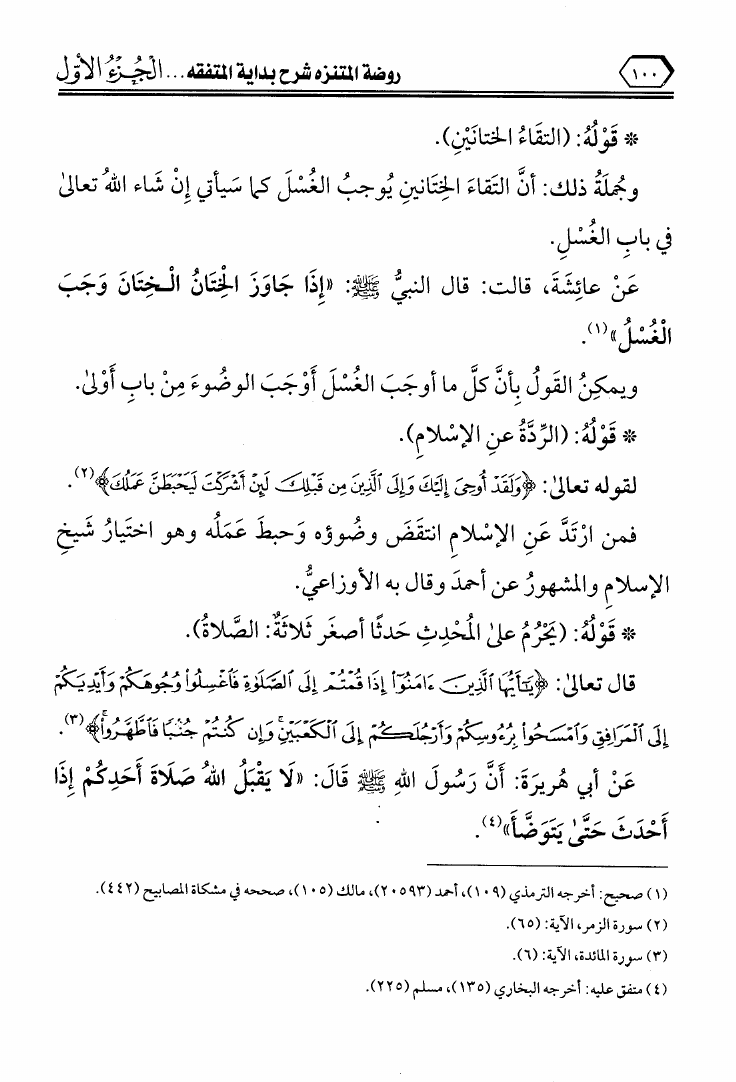 ١٠٠ روضة المتنزه شرح بداية المتفقه ... الجُزءُ الأوّل
* قَوْلُهُ: (التقَاءُ الختانَيْنِ).
وجُملَةُ ذلك: أنَّ التَقاءَ الخِتَانينِ يُوجبُ الغُسْلَ كما سَيأتي إنْ شَاء اللهُ تعالىٰ
في بابِ الغُسْلِ.
عَنْ عائِشَةَ، قالت: قال النبيُّ ﷺ: «إِذَا جَاوَزَ الْخِتَانُ الْـخِتَانَ وَجَبَ
الْغُسْلُ»(١).
ويمكِنُ القَولُ بِأنَّ كلَّ ما أوجَبَ الغُسْلَ أوْجَبَ الوضُوءَ مِنْ بابِ أَوْلىٰ.
* قَوْلُهُ: (الرِّدَّةُ عنِ الإسْلامِ).
لقوله تعالىٰ: ﴿وَلَقَدْ أُوحِيَ إِلَيْكَ وَإِلَى ٱلَّذِينَ مِن قَبْلِكَ لَئِنْ أَشْرَكْتَ لَيَحْبَطَنَّ عَمَلُكَ﴾(٢).
فمن ارْتَدَّ عَنِ الإسْلامِ انتقَضَ وضُوؤه وَحبطَ عَمَلُه وهو اختيَارُ شَيخِ
الإسلامِ والمشهورُ عن أحمدَ وقال به الأوزاعيُّ.
* قَوْلُهُ: (يَحْرُمُ علىٰ المُحْدِثِ حَدثًا أصغَر ثَلاثَةٌ: الصَّلاةُ).
قال تعالىٰ: ﴿يَٰٓأَيُّهَا ٱلَّذِينَ ءَامَنُوٓا۟ إِذَا قُمْتُمْ إِلَى ٱلصَّلَوٰةِ فَٱغْسِلُوا۟ وُجُوهَكُمْ وَأَيْدِيَكُمْ
إِلَى ٱلْمَرَافِقِ وَٱمْسَحُوا۟ بِرُءُوسِكُمْ وَأَرْجُلَكُمْ إِلَى ٱلْكَعْبَيْنِ ۚ وَإِن كُنتُمْ جُنُبًا فَٱطَّهَّرُوا۟ ۚ﴾(٣).
عَنْ أبي هُريرَةَ: أنَّ رَسُولَ اللهِ ﷺ قَالَ: «لَا يَقْبَلُ اللهُ صَلَاةَ أَحَدِكُمْ إِذَا
أَحْدَثَ حَتَّىٰ يَتَوَضَّأَ»(٤).
(١) صحيح: أخرجه الترمذي (١٠٩)، أحمد (٢٠٥٩٣)، مالك (١٠٥)، صححه في مشكاة المصابيح (٤٤٢).
(٢) سورة الزمر، الآية: (٦٥).
(٣) سورة المائدة، الآية: (٦).
(٤) متفق عليه: أخرجه البخاري (١٣٥)، مسلم (٢٢٥).